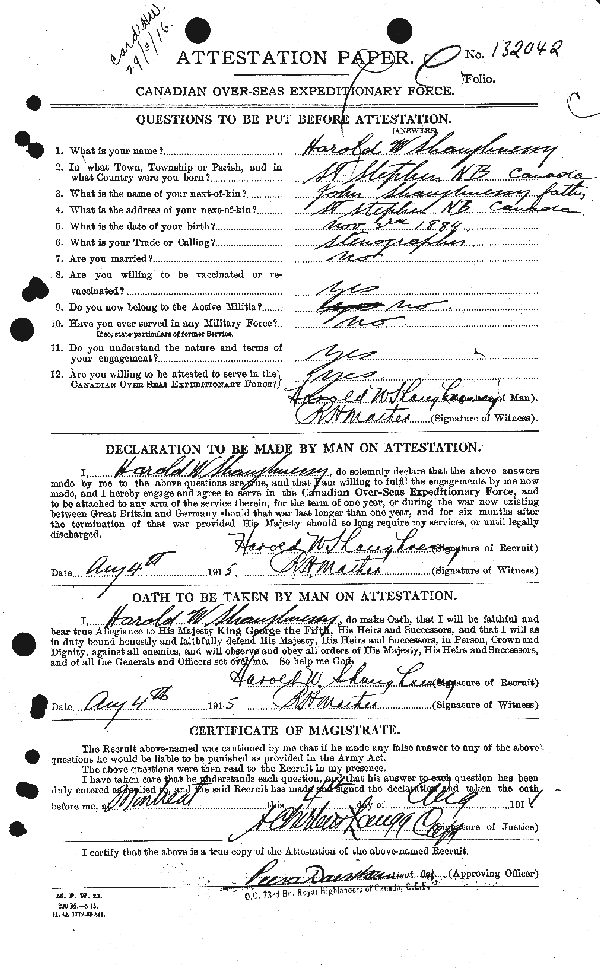 Card HW.
29/9/16.
ATTESTATION PAPER.
No. 132042
Folio.
CANADIAN OVER-SEAS EXPEDITIONARY FORCE.
QUESTIONS TO BE PUT BEFORE ATTESTATION.
(ANSWERS)
1. What is your name? Harold W Shaughnessy
2. In what Town, Township or Parish, and in
what Country were you born? St Stephen NB Canada
3. What is the name of your next-of-kin? John Shaughnessy father
4. What is the address of your next-of-kin? St Stephen NB Canada
5. What is the date of your birth? Nov 3rd 1889
6. What is your Trade or Calling? Stenographer
7. Are you married? No
8. Are you willing to be vaccinated or re-
vaccinated? Yes
9. Do you now belong to the Active Militia? no
10. Have you ever served in any Military Force? no
If so, state particulars of former Service.
11. Do you understand the nature and terms of
your engagement? Yes
12. Are you willing to be attested to serve in the
CANADIAN OVER-SEAS EXPEDITIONARY FORCE? Yes
Harold W Shaughnessy (Signature of Man).
R H Mather (Signature of Witness).
DECLARATION TO BE MADE BY MAN ON ATTESTATION.
I, Harold W Shaughnessy, do solemnly declare that the above answers
made by me to the above questions are true, and that I am willing to fulfil the engagements by me now
made, and I hereby engage and agree to serve in the Canadian Over-Seas Expeditionary Force, and
to be attached to any arm of the service therein, for the term of one year, or during the war now existing
between Great Britain and Germany should that war last longer than one year, and for six months after
the termination of that war provided His Majesty should so long require my services, or until legally
discharged.
Harold W Shaughnessy (Signature of Recruit)
Date Aug 4th 1915 R H Mather (Signature of Witness)
OATH TO BE TAKEN BY MAN ON ATTESTATION.
I, Harold W Shaughnessy, do make Oath, that I will be faithful and
bear true Allegiance to His Majesty King George the Fifth, His Heirs and Successors, and that I will as
in duty bound honestly and faithfully defend His Majesty, His Heirs and Successors, in Person, Crown and
Dignity, against all enemies, and will observe and obey all orders of His Majesty, His Heirs and Successors,
and of all the Generals and Officers set over me. So help me God.
Harold W Shaughnessy (Signature of Recruit)
Date Aug 4th 1915 R H Mather (Signature of Witness)
CERTIFICATE OF MAGISTRATE.
The Recruit above-named was cautioned by me that if he made any false answer to any of the above
questions he would be liable to be punished as provided in the Army Act.
The above questions were then read to the Recruit in my presence.
I have taken care that he understands each question, and that his answer to each question has been
duly entered as replied to, and the said Recruit has made and signed the declaration and taken the oath
before me, at Montreal this 4 day of Aug 191
(Signature of Justice)
I certify that the above is a true copy of the Attestation of the above-named Recruit.
(Approving Officer)
O.C. 73rd Bn. Royal Highlanders of Canada, C.E.F.
M. F. W. 23.